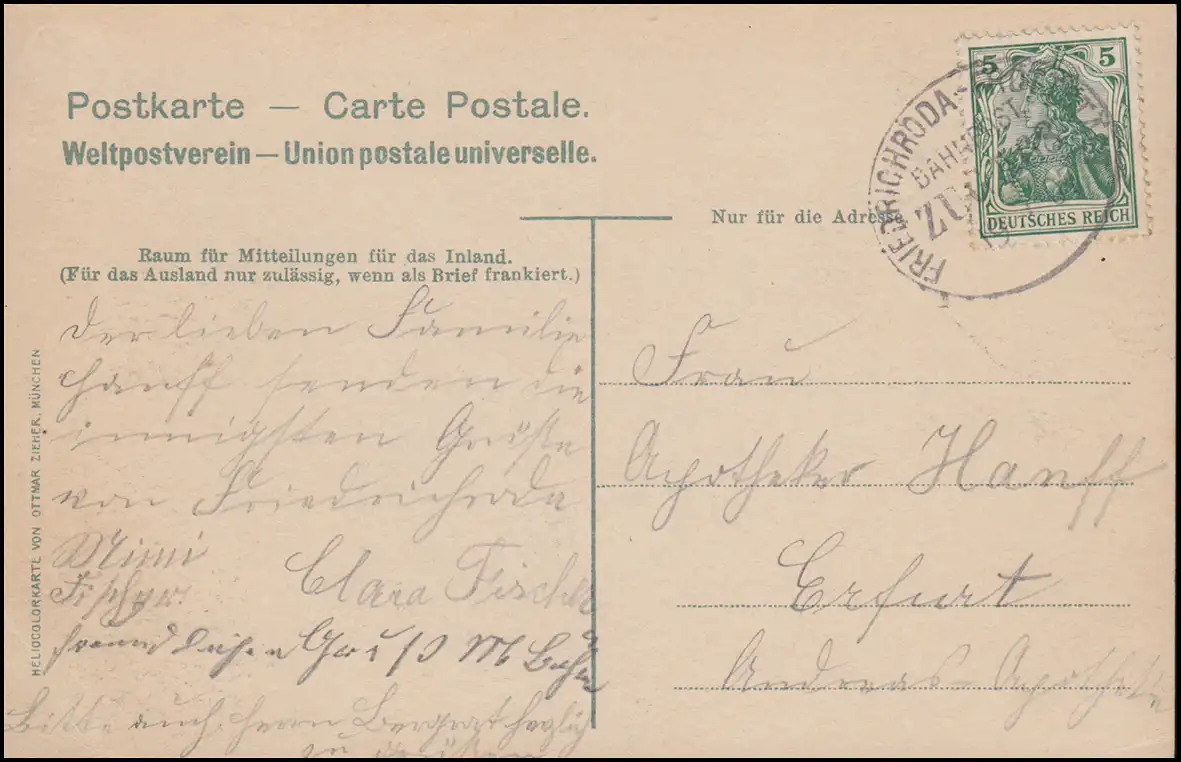 Postkarte — Carte Postale.
Weltpostverein — Union postale universelle.
5 5
DEUTSCHES REICH
FRIEDRICHRODA-
BAHNPOST
ZUG
Nur für die Adresse
Raum für Mitteilungen für das Inland.
(Für das Ausland nur zulässig, wenn als Brief frankiert.)
Der lieben Familie
Hanff senden die
innigsten Grüße
von Friedrichroda
Mimi
Fischer.
Clara Fischer
freundlichen Gruß M
Bitte auch Herrn Bergrat herzlich
zu grüßen
Frau
Apotheker Hanff
Erfurt
Andreas-Apotheke
HELIOCOLORKARTE VON OTTMAR ZIEHER, MÜNCHEN